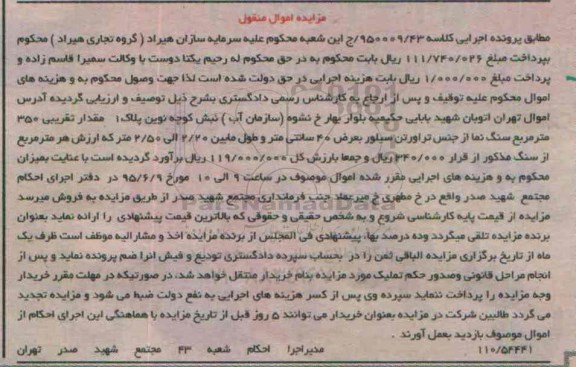 مزایده اموال منقول
مطابق پرونده اجرایی کلاسه ۹۵۰۰۰۹/۴۳/ج این شعبه محکوم علیه سرمایه سازان هیراد ( گروه تجاری هیراد ) محکوم
بپرداخت مبلغ ۱۱۱/۷۴۰/۰۲۶ ریال بابت محکوم به در حق محکوم له رحیم یکتا دوست با وکالت سمیرا قاسم زاده و
پرداخت مبلغ ۱/۰۰۰/۰۰۰ ریال بابت هزینه اجرایی در حق دولت شده است لذا جهت وصول محکوم به و هزینه های
اموال محکوم علیه توقیف و پس از ارجاع به کارشناس رسمی دادگستری بشرح ذیل توصیف و ارزیابی گردیده آدرس
اموال تهران اتوبان شهید بابایی حکیمیه بلوار بهار خ نشوه (سازمان آب ) نبش کوچه نوین پلاک۱ مقدار تقریبی ۳۵۰
مترمربع سنگ نما از جنس تراورتن سیلور بعرض ۴۰ سانتی متر و طول مابین ۲/۲۰ الی ۲/۵۰ متر که ارزش هر مترمربع
از سنگ مذکور از قرار ۳۴۰/۰۰۰ ریال و جمعا بارزش کل ۱۱۹/۰۰۰/۰۰۰ ریال برآورد گردیده است با عنایت بمیزان
محکوم به و هزینه های اجرایی مقرر شده اموال موصوف در ساعت ۹ الی ۱۰ مورخ ۹۵/۶/۹ در دفتر اجرای احکام
مجتمع شهید صدر واقع در خ مطهری خ میرعماد جنب فرمانداری مجتمع شهید صدر از طریق مزایده به فروش میرسد
مزایده از قیمت پایه کارشناسی شروع و به شخص حقیقی و حقوقی که بالاترین قیمت پیشنهادی را ارائه نماید بعنوان
برنده مزایده تلقی میگردد وده درصد بهاء پیشنهادی فی المجلس از برنده مزایده اخذ و مشارالیه موظف است ظرف یک
ماه از تاریخ برگزاری مزایده الباقی ثمن را در بحساب سپرده دادگستری تودیع و فیش انرا ضم پرونده نماید و پس از
انجام مراحل قانونی وصدور حکم تملیک مورد مزایده بنام خریدار منتقل خواهد شد، در صورتیکه در مهلت مقرر خریدار
وجه مزایده را پرداخت ننماید سپرده وی پس از کسر هزینه های اجرایی به نفع دولت ضبط می شود و مزایده تجدید
می گردد طالبین شرکت در مزایده بعنوان خریدار می توانند ۵ روز قبل از تاریخ مزایده با هماهنگی این اجرای احکام از
اموال موصوف بازدید بعمل آورند .
۱۱۰/۵۴۴۴۱ مدیراجرا احکام شعبه ۴۳ مجتمع شهید صدر تهران